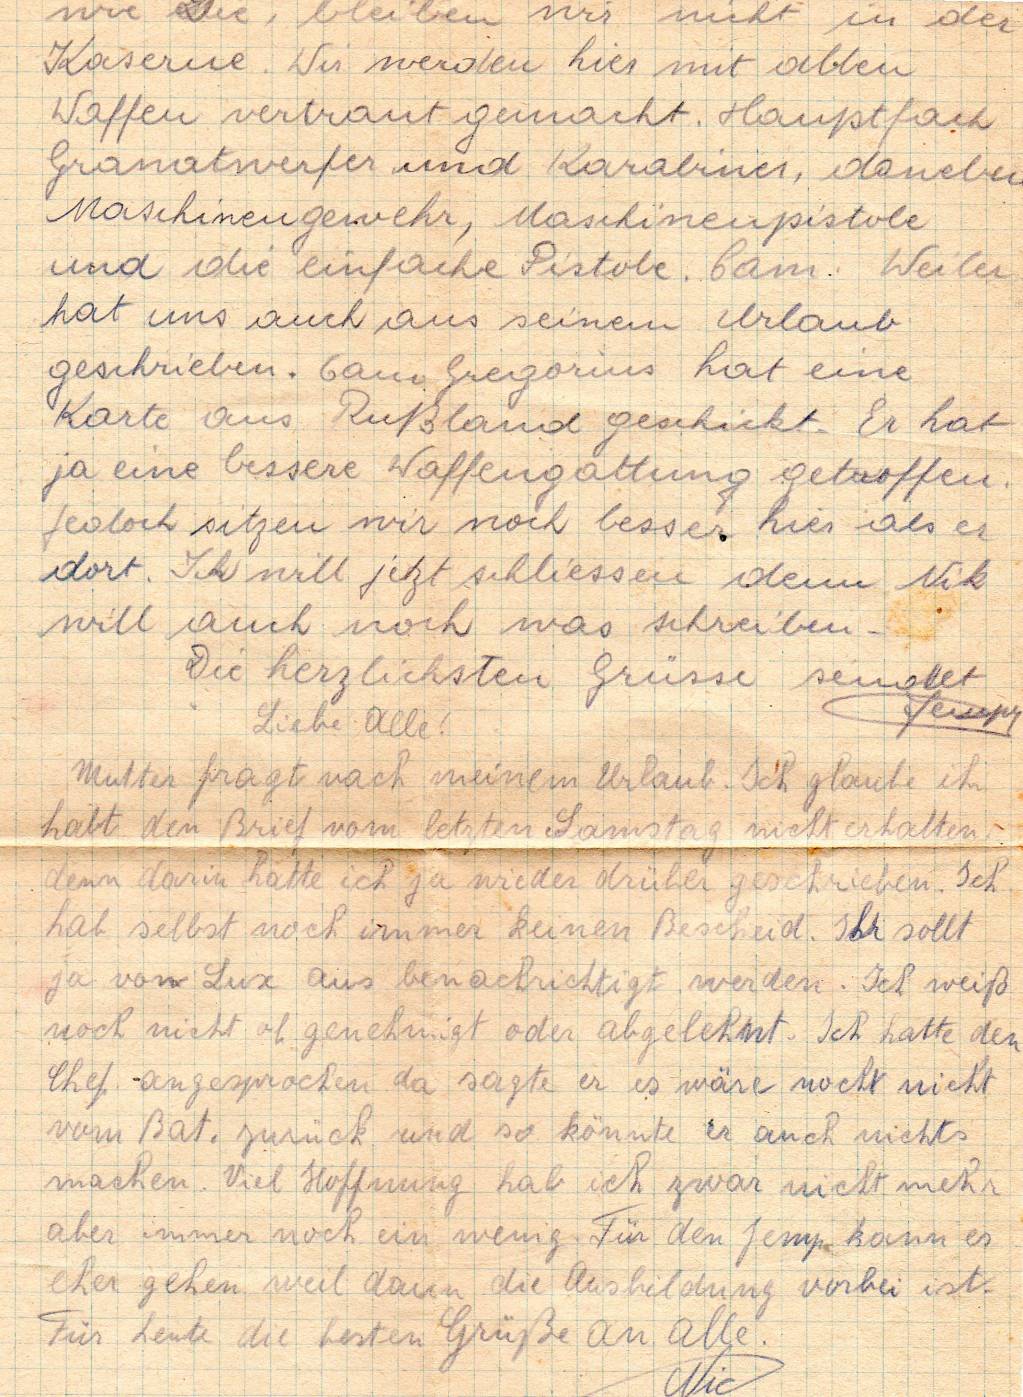 wie Sie, bleiben wir nicht in der
Kaserne. Wir werden hier mit allen
Waffen vertraut gemacht. Hauptfach
Granatwerfer und Karabiner, daneben
Maschinengewehr, Maschinenpistole
und die einfache Pistole. Cam. Weiler
hat uns auch aus seinem Urlaub
geschrieben. Cam. Gregorius hat eine
Karte aus Rußland geschickt. Er hat
ja eine bessere Waffengattung getroffen.
Jedoch sitzen wir noch besser hier als er
dort. Ich will jetzt schliessen denn Nik
will auch noch was schreiben.
Die herzlichsten Grüsse sendet
Jempy
Liebe Alle!
Mutter fragt nach meinem Urlaub. Ich glaube ihr
habt den Brief vom letzten Samstag nicht erhalten
denn darin hatte ich ja wieder drüber geschrieben. Ich
hab selbst noch immer keinen Bescheid. Ihr sollt
ja von Lux aus benachrichtigt werden. Ich weiß
noch nicht ob genehmigt oder abgelehnt. Ich hatte den
Chef angesprochen da sagte er es wäre noch nicht
vom Bat. zurück und so könnte er auch nichts
machen. Viel Hoffnung hab ich zwar nicht mehr
aber immer noch ein wenig. Für den Jemp kann es
eher gehen weil dann die Ausbildung vorbei ist.
Für heute die besten Grüße an alle.
Nic